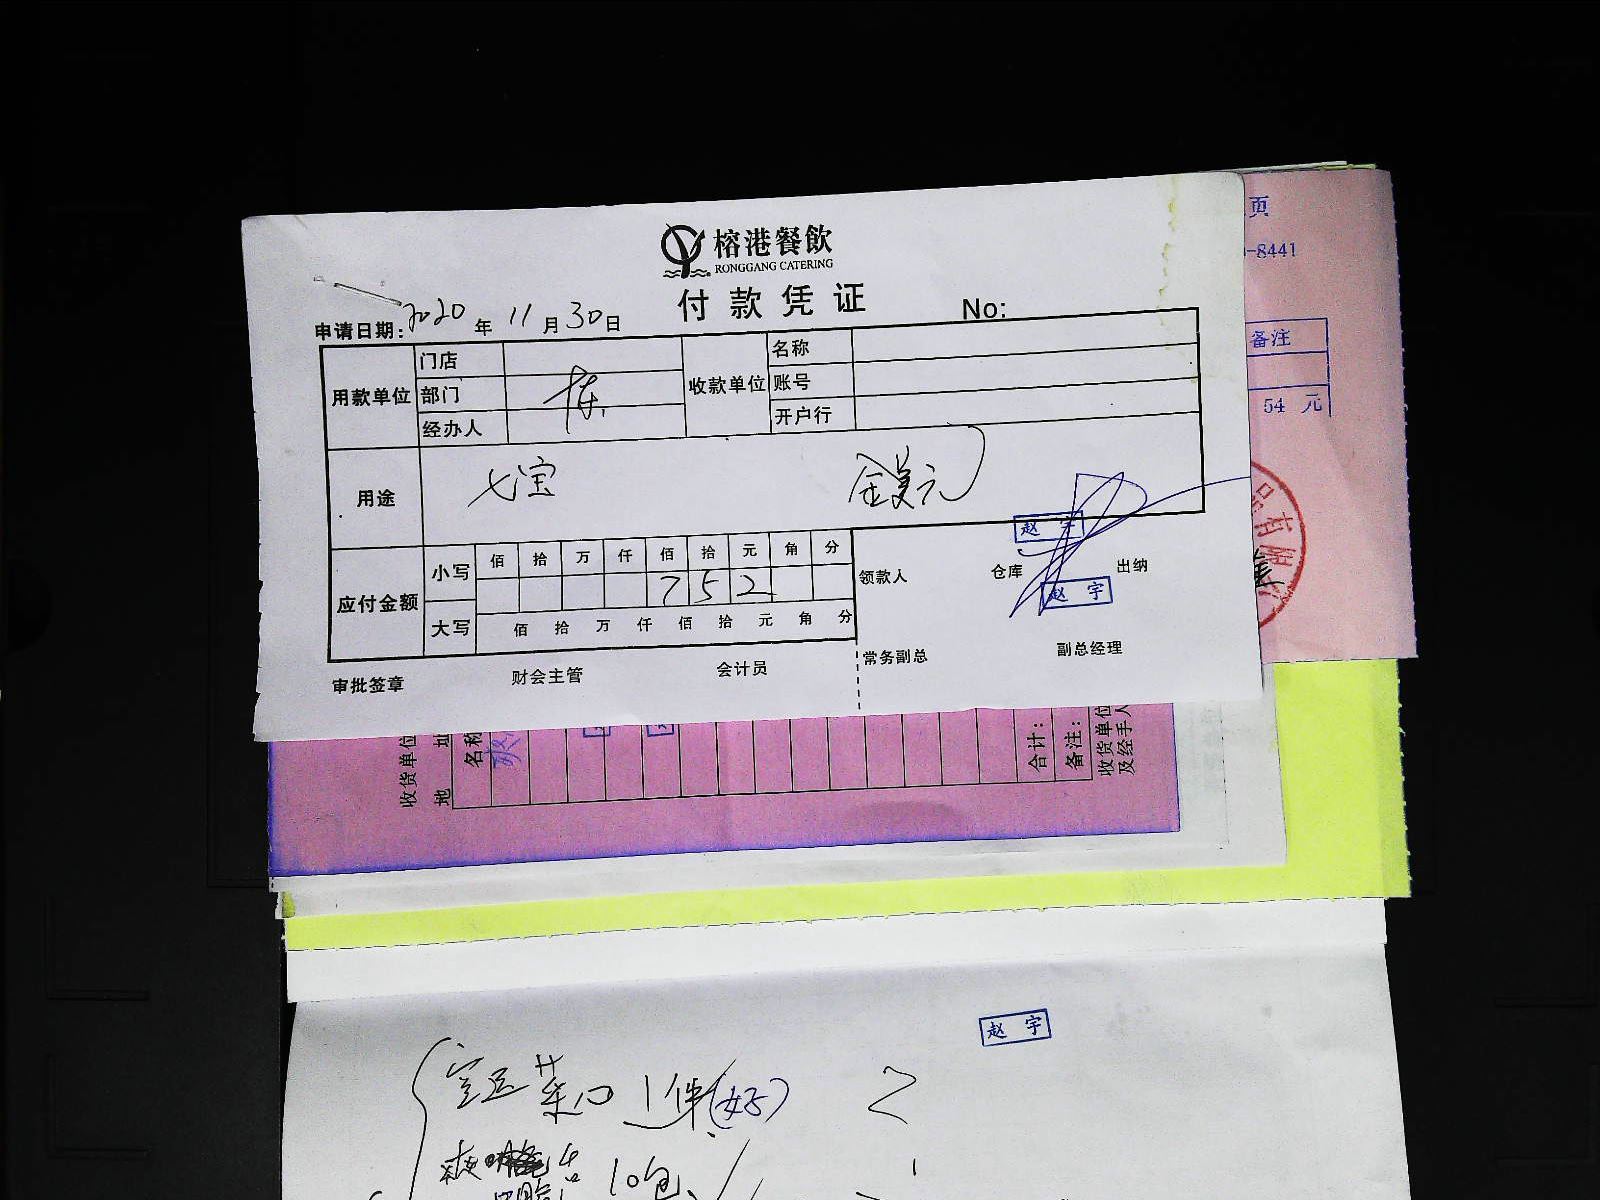 榕港餐飲
RONGGANG CATERING
付款凭证
No:
申请日期: 2020 年 11 月 30 日
用款单位 门店 收款单位 名称
部门 账号
经办人 开户行
用途 七宝 金美元
应付金额 小写 佰 拾 万 仟 佰 拾 元 角 分
7 5 2
大写 佰 拾 万 仟 佰 拾 元 角 分
领款人 仓库 出纳
赵宇
赵宇
审批签章 财会主管 会计员 常务副总 副总经理
页
-8441
备注
54 元
品有限
收货单位
地址
名称
合计:
备注:
收货单位
及经手人
赵宇
空运菜心 1件(好) 2
10包